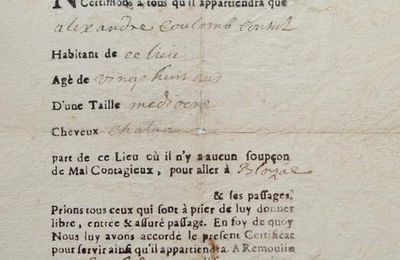 Certifions à tous qu'il appartiendra que
alexandre Coulomb
Habitant de ce lieu
Agé de vingt huit ans
D'une Taille mediocre
Cheveux chatan
part de ce Lieu où il n'y a aucun soupçon
de Mal Contagieux, pour aller à
& ses passages,
Prions tous ceux qui sont à prier de luy donner
libre, entrée & assuré passage. En foy de quoy
Nous luy avons accordé le present Certificat
pour servir ainsi qu'il appartiendra. A Remoulin